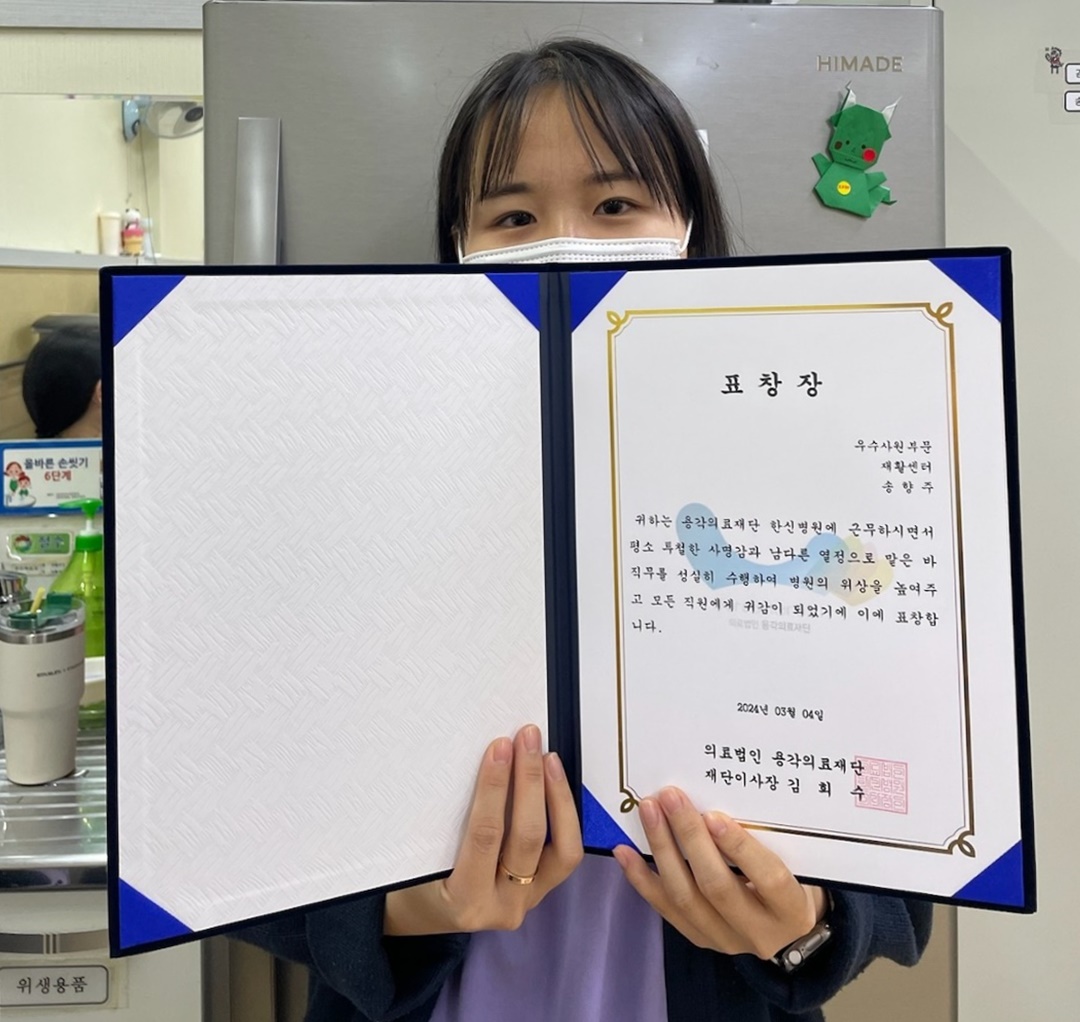 HIMADE
표 창 장
우수사원부문
재활센터
송 향 주
귀하는 용각의료재단 한신병원에 근무하시면서
평소 투철한 사명감과 남다른 열정으로 맡은 바
직무를 성실히 수행하여 병원의 위상을 높여주
고 모든 직원에게 귀감이 되었기에 이에 표창합
니다.
의료법인 용각의료재단
2024년 03월 04일
의료법인 용각의료재단
재단이사장 김 희 수
올바른 손씻기
6단계
위생용품